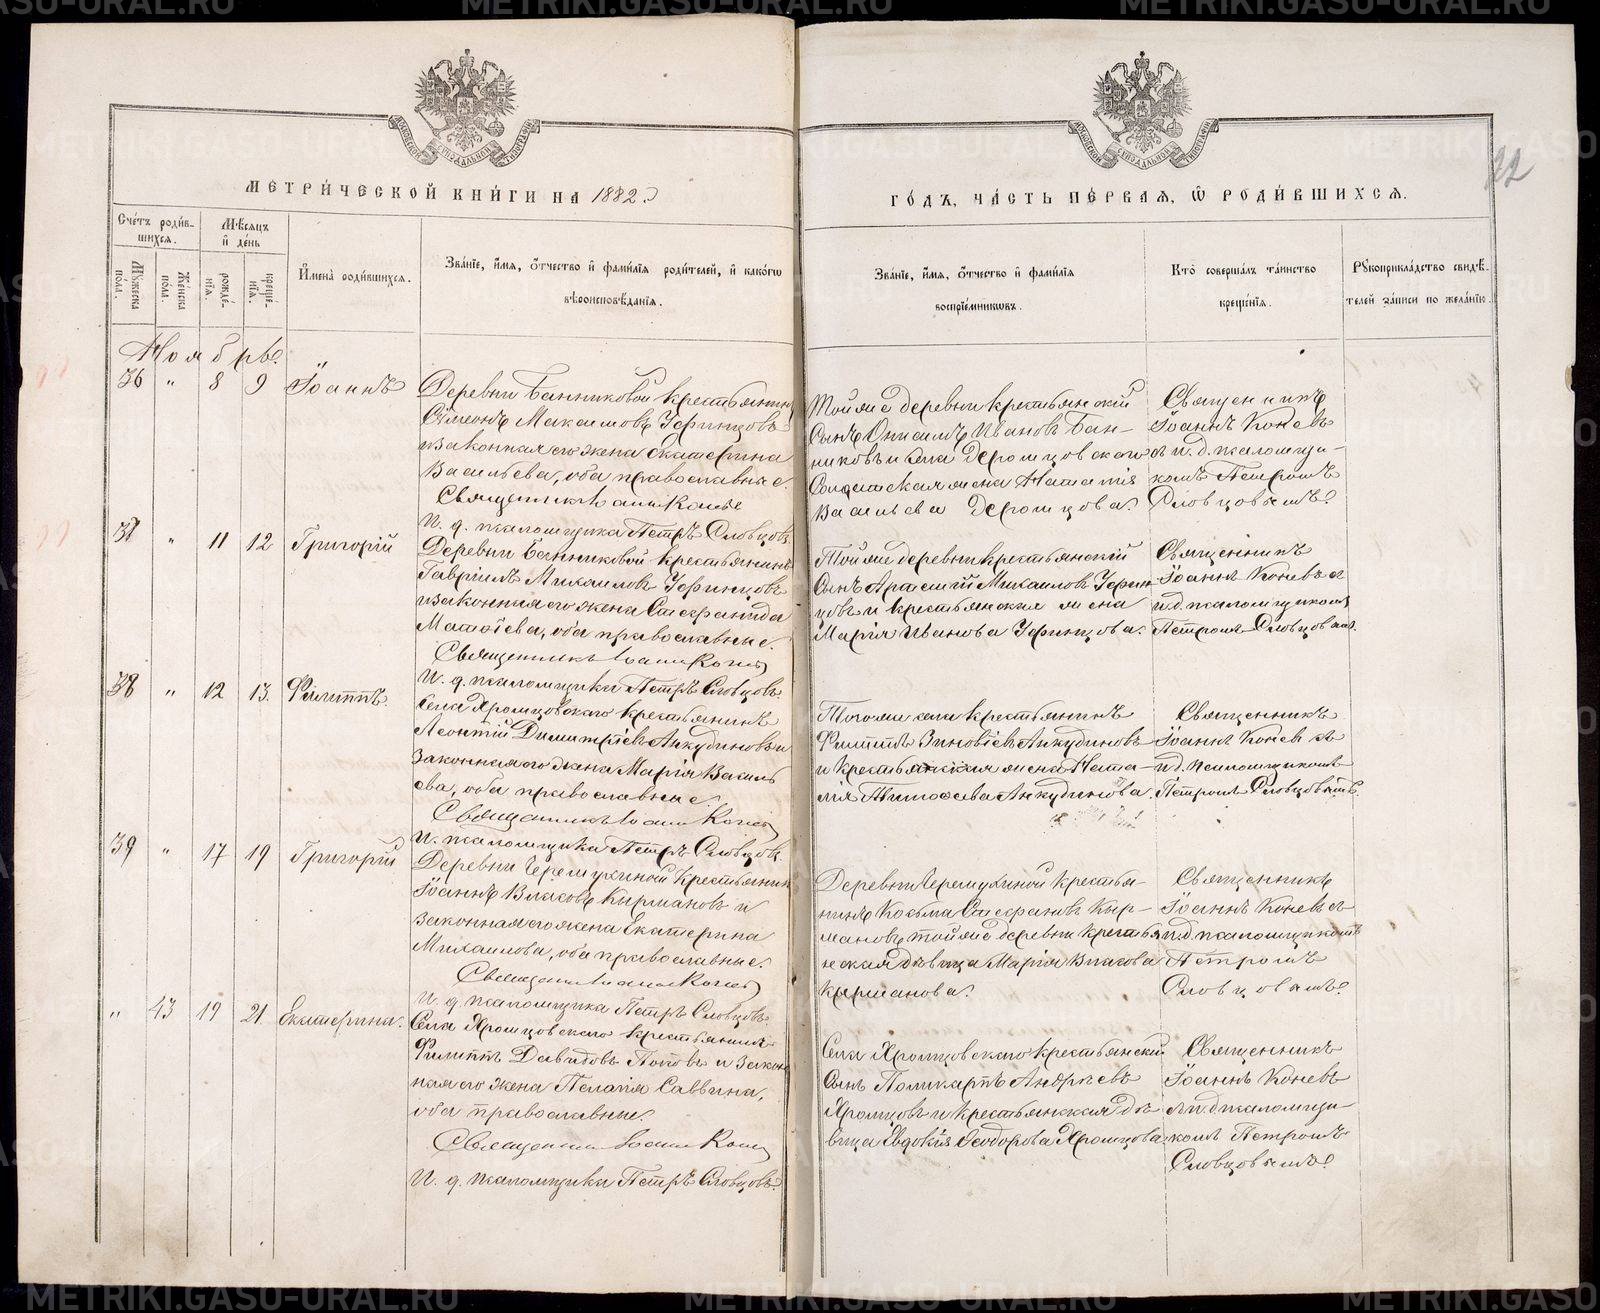 МЕТРИ́ЧЕСКОЙ КНИ́ГИ НА 1882
ГО́ДЪ, ЧА́СТЬ ПЕ́РВАЯ, Ѡ РОДИ́ВШИХСЯ.
22
Сче́тъ роди́в-
шихся.
Мѣсяцъ
и де́нь
Мꙋ́жеска по́ла.
Же́нска по́ла.
рожде́-
нїя.
креще́-
нїя.
Имена̀ роди́вшихся.
Зва́нїе, и́мя, о́тчество и фами́лїя роди́телей, и како́гѡ
вѣроисповѣ́данїя.
Зва́нїе, и́мя, о́тчество и фами́лїя
воспрїе́мникѡвъ.
Кто̀ соверша́лъ та́инство
креще́нїя.
Рꙋкоприкла́дство свидѣ́-
телей за́писи по жела́нїю.
Ноябрь.
36 " 8 9 Іоаннъ
Деревни Банниковой крестьянинъ
Симеонъ Максимовъ Уфинцовъ
и законная его жена Екатерина
Васильева, оба православные.
Священникъ Іоаннъ Коневъ
И. д. псаломщика Петръ Словцовъ
Той же деревни крестьянскій
сынъ Онисимъ Ивановъ Бан-
никовъ и села Хромцовскаго
солдатская жена Наталія
Васильева Хромцова.
Священникъ
Іоаннъ Коневъ
съ и. д. псаломщи-
комъ Петромъ
Словцовымъ.
37 " 11 12 Григорій
Деревни Банниковой крестьянинъ
Гавріилъ Михаиловъ Уфинцовъ
и законная его жена Стефанида
Матѳіева, оба православные.
Священникъ Іоаннъ Коневъ
И. д. псаломщика Петръ Словцовъ
Той же деревни крестьянскій
сынъ Артемій Михаиловъ Уфин-
цовъ и крестьянская жена
Марія Иванова Уфинцова.
Священникъ
Іоаннъ Коневъ съ
и. д. псаломщикомъ
Петромъ Словцовымъ.
38 " 12 13. Филиппъ.
Села Хромцовскаго крестьянинъ
Леонтій Димитріевъ Анкудиновъ и
законная его жена Марія Василь-
ева, оба православные.
Священникъ Іоаннъ Коневъ
И. д. псаломщика Петръ Словцовъ
Того же села крестьянинъ
Филиппъ Зиновіевъ Анкудиновъ
и крестьянская жена Ната-
лія Тимоѳеева Анкудинова.
Священникъ
Іоаннъ Коневъ съ
и. д. псаломщикомъ
Петромъ Словцовымъ.
39 " 17 19 Григорій
Деревни Черемухиной крестьянинъ
Іоаннъ Власовъ Кырмановъ и
законная его жена Екатерина
Михаилова, оба православные.
Священникъ Іоаннъ Коневъ
И. д. псаломщика Петръ Словцовъ
Деревни Черемухиной крестья-
нинъ Косьма Стефановъ Кыр-
мановъ, той же деревни крестья-
нская дѣвица Марія Власова
Кырманова.
Священникъ
Іоаннъ Коневъ съ
и. д. псаломщикомъ
Петромъ
Словцовымъ.
" 43 19 21 Екатерина.
Села Хромцовскаго крестьянинъ
Филиппъ Давидовъ Поповъ и закон-
ная его жена Пелагія Саввина,
оба православные.
Священникъ Іоаннъ Коневъ
И. д. псаломщика Петръ Словцовъ.
Села Хромцовскаго крестьянскій
сынъ Поликарпъ Андреевъ
Хромцовъ и крестьянская дѣ-
вица Евдокія Ѳеодорова Хромцова.
Священникъ
Іоаннъ Коневъ
съ и. д. псаломщи-
комъ Петромъ
Словцовымъ.
METRIKI.GASO-URAL.RU